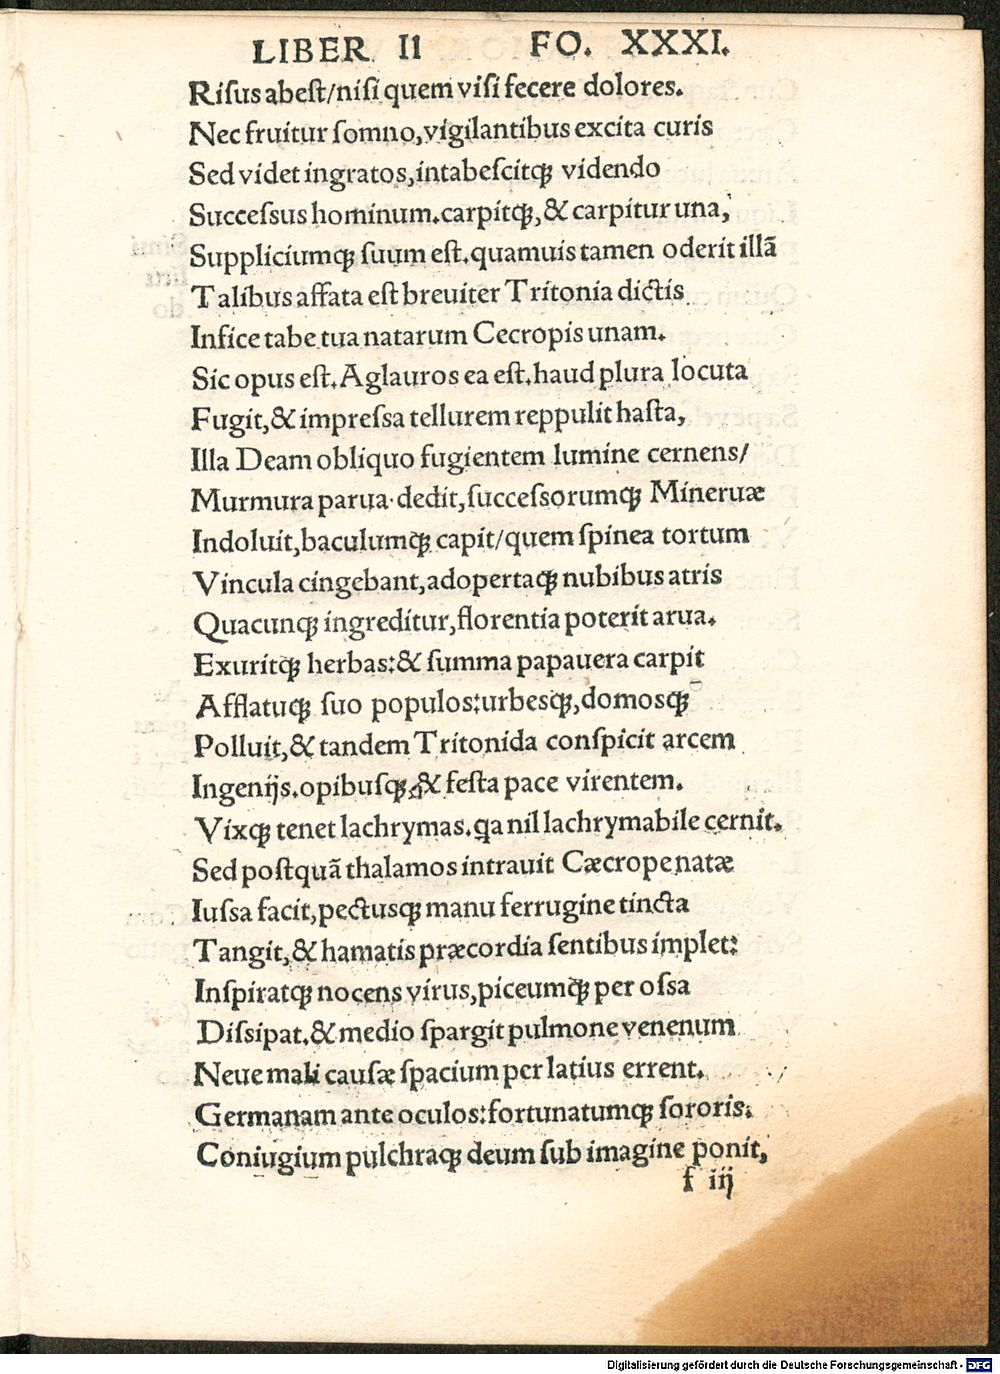 LIBER II FO. XXXI.
Riſus abeſt/niſi quem viſi fecere dolores.
Nec fruitur ſomno,vigilantibus excita curis
Sed videt ingratos,intabeſcitqꝫ videndo
Succeſsus hominum.carpitqꝫ,& carpitur una,
Suppliciumqꝫ ſuum eſt.quamuis tamen oderit illã
Talibus affata eſt breuiter Tritonia dictis
Infice tabe tua natarum Cecropis unam.
Sic opus eſt.Aglauros ea eſt.haud plura locuta
Fugit,& impreſsa tellurem reppulit haſta,
Illa Deam obliquo fugientem lumine cernens/
Murmura parua dedit,ſucceſsorumqꝫ Mineruæ
Indoluit,baculumqꝫ capit/quem ſpinea tortum
Vincula cingebant,adopertaqꝫ nubibus atris
Quacunqꝫ ingreditur,florentia poterit arua.
Exuritqꝫ herbas:& ſumma papauera carpit
Afflatuqꝫ ſuo populos:urbesqꝫ,domosqꝫ
Polluit,& tandem Tritonida conſpicit arcem
Ingenijs.opibuſqꝫ,& feſta pace virentem.
Vixqꝫ tenet lachrymas.qa nil lachrymabile cernit.
Sed poſtquã thalamos intrauit Cæcrope natæ
Iuſsa facit,pectusqꝫ manu ferrugine tincta
Tangit,& hamatis præcordia ſentibus implet:
Inſpiratqꝫ nocens virus,piceumqꝫ per oſsa
Diſsipat.& medio ſpargit pulmone venenum
Neue mali cauſæ ſpacium per latius errent.
Germanam ante oculos:fortunatumqꝫ ſororis.
Coniugium pulchraqꝫ deum ſub imagine ponit,
f iij
Digitalisierung gefördert durch die Deutsche Forschungsgemeinschaft - DFG